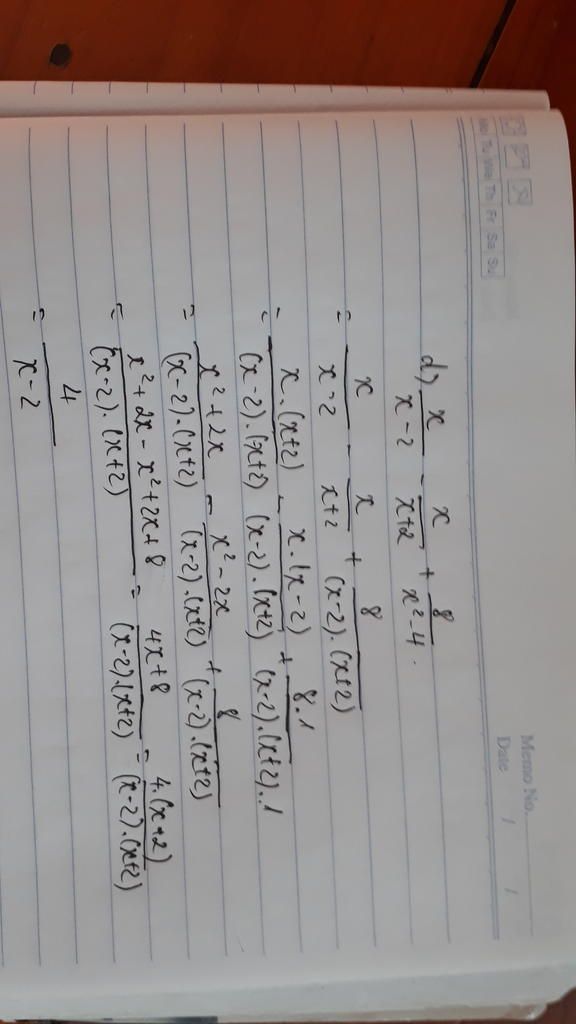 Memo No.
Date / /
Mo Tu We Th Fr Sa Su
d) x/(x-2) - x/(x+2) + 8/(x²-4).
= x/(x-2) - x/(x+2) + 8/((x-2).(x+2))
= x.(x+2)/((x-2).(x+2)) - x.(x-2)/((x-2).(x+2)) + 8.1/((x-2).(x+2).1)
= (x²+2x)/((x-2).(x+2)) - (x²-2x)/((x-2).(x+2)) + 8/((x-2).(x+2))
= (x²+2x-x²+2x+8)/((x-2).(x+2)) = (4x+8)/((x-2).(x+2)) = 4.(x+2)/((x-2).(x+2))
= 4/(x-2)